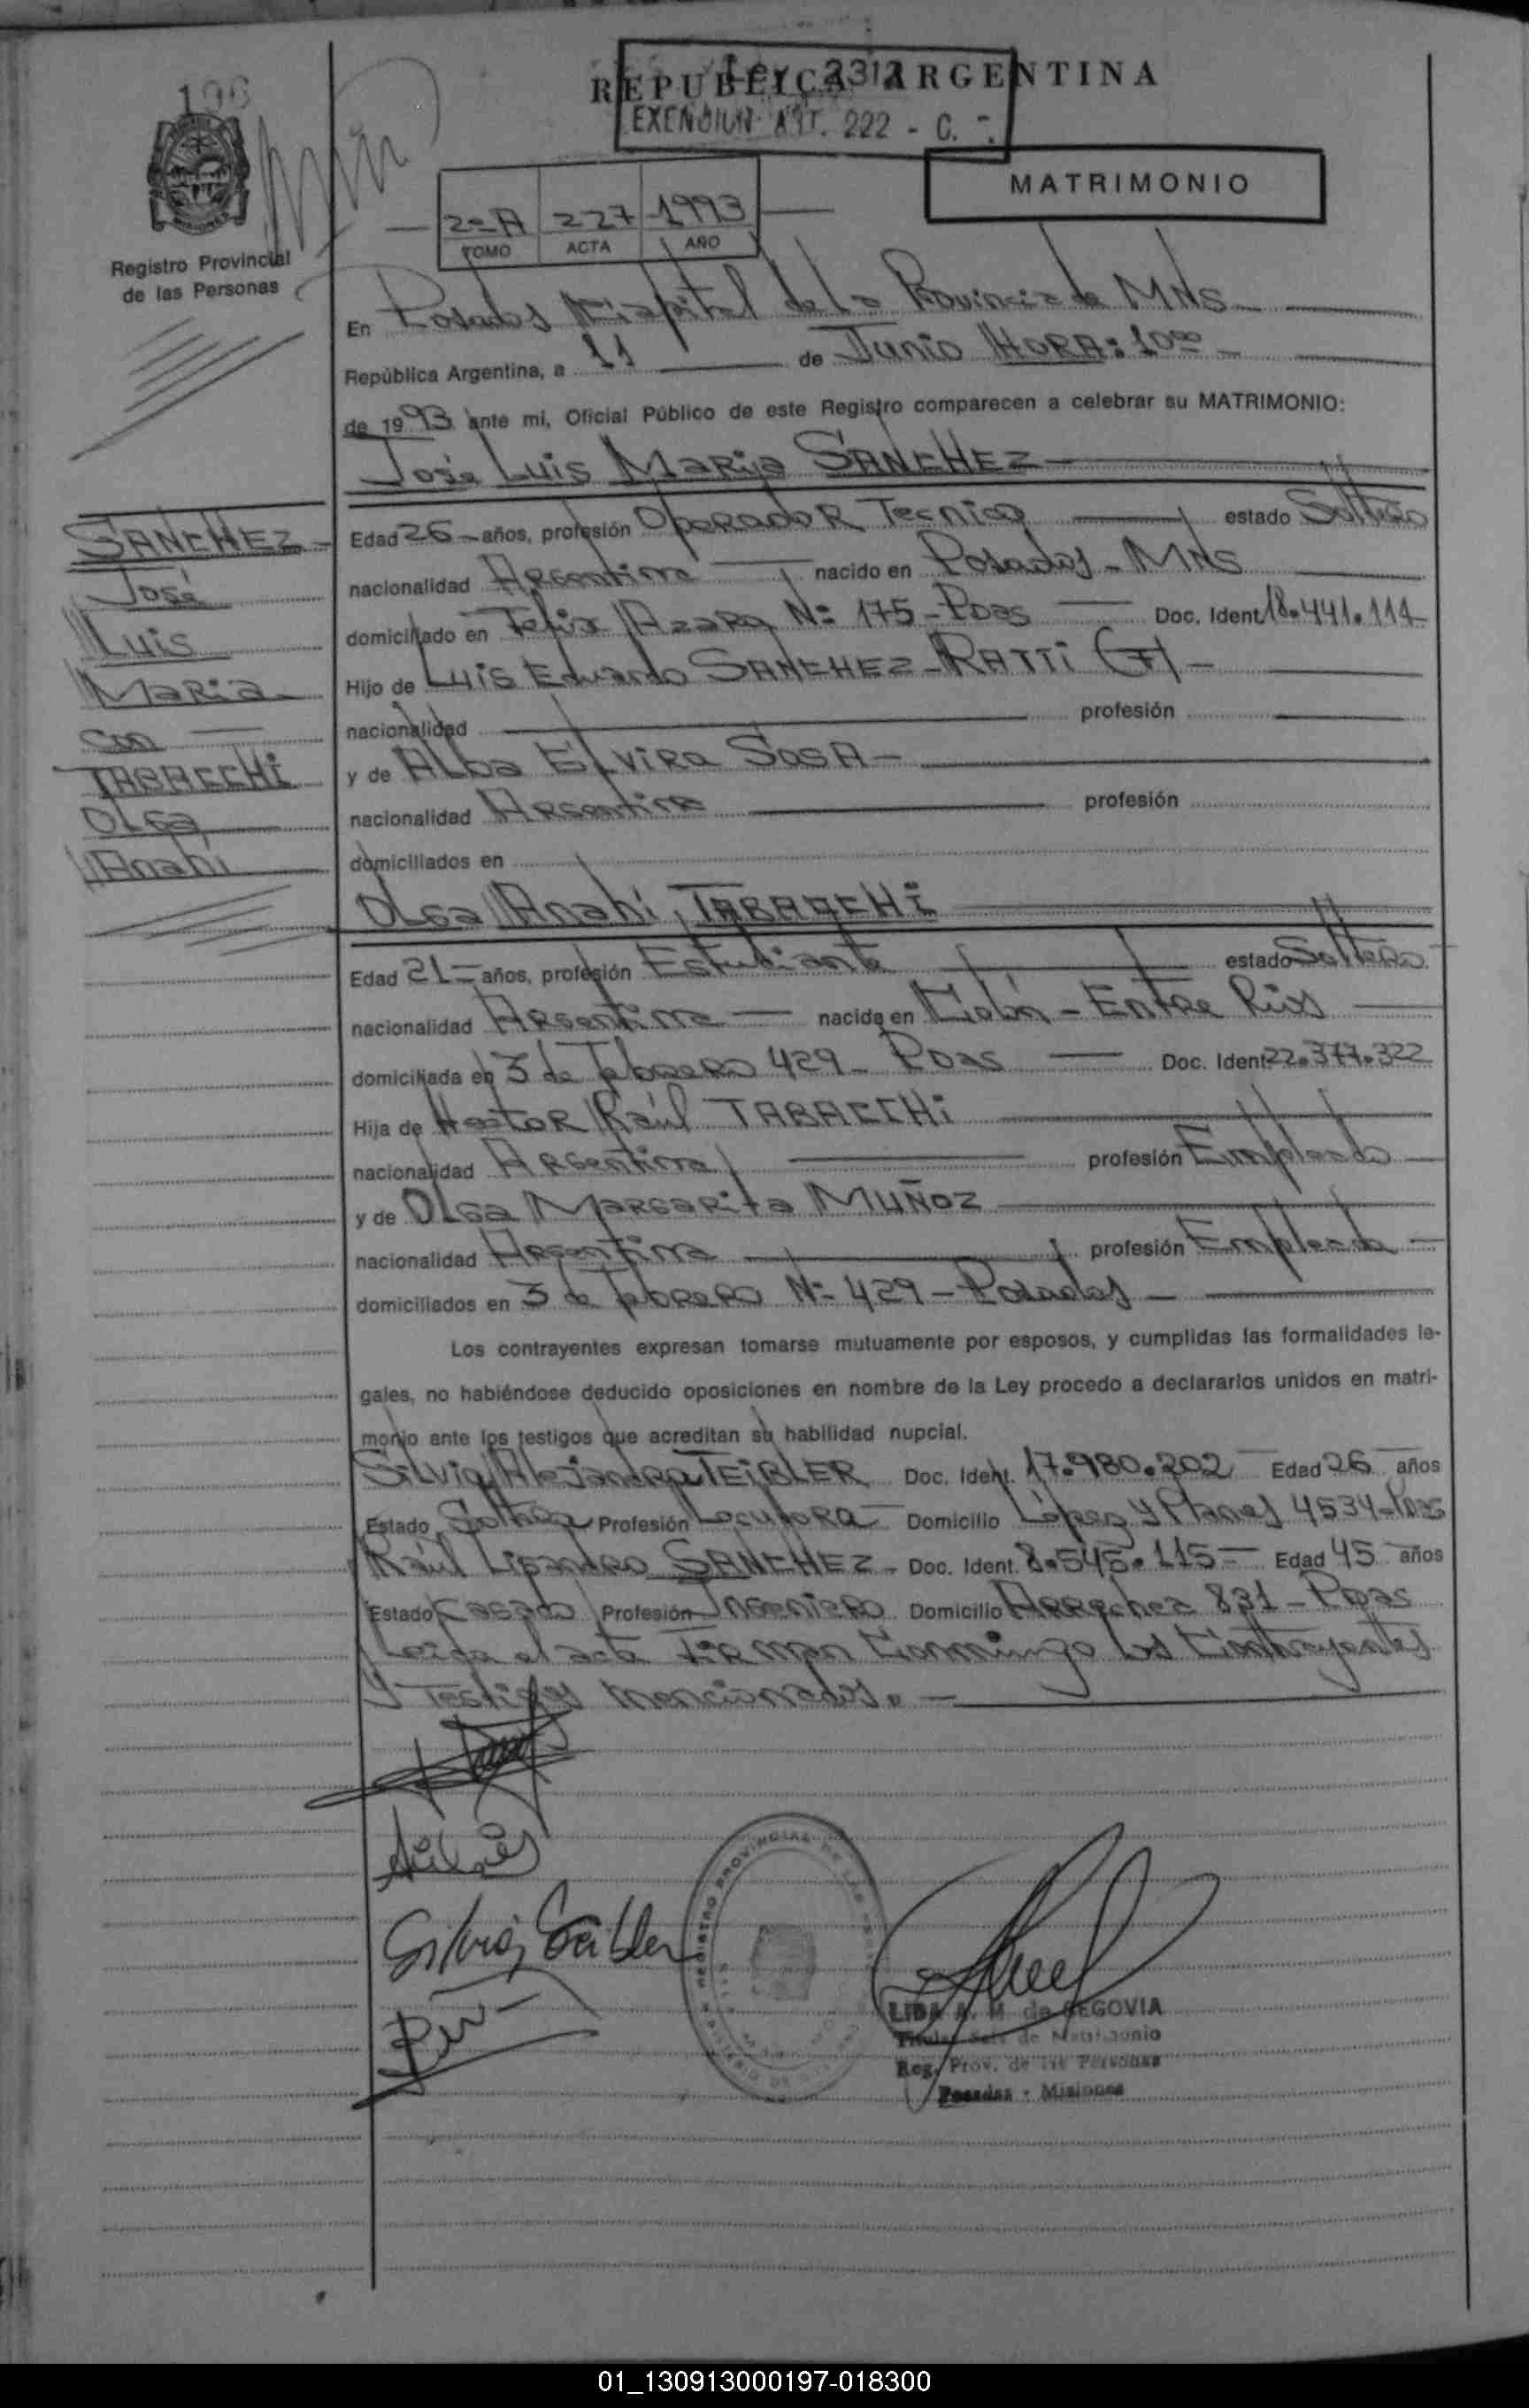 196
REPUBLICA ARGENTINA
Ley 2312
EXENCION ART. 222 - C.
MATRIMONIO
2º A 227 1993
TOMO ACTA AÑO
Registro Provincial
de las Personas
En Posadas Capital de la Provincia de MNS
República Argentina, a 11 de Junio HORA: 10ºº
de 1993 ante mi, Oficial Público de este Registro comparecen a celebrar su MATRIMONIO:
José Luis Maria SANCHEZ
SANCHEZ
José
Luis
Maria
con
TABACCHI
Olga
Anahí
Edad 26 años, profesión Operador Tecnico estado Soltero
nacionalidad Argentina nacido en Posadas - MNS
domiciliado en Felix Azara Nº 175 - Pdas Doc. Ident. 18.441.114
Hijo de Luis Eduardo SANCHEZ - RATTI (F)
nacionalidad profesión
y de Alba Elvira SOSA
nacionalidad Argentina profesión
domiciliados en
Olga Anahí TABACCHI
Edad 21 años, profesión Estudiante estado Soltera
nacionalidad Argentina nacida en Colón - Entre Rios
domiciliada en 3 de Febrero 429 - Pdas Doc. Ident. 22.377.322
Hija de Hector Raúl TABACCHI
nacionalidad Argentina profesión Empleado
y de Olga Margarita MUÑOZ
nacionalidad Argentina profesión Empleada
domiciliados en 3 de Febrero Nº 429 - Posadas
Los contrayentes expresan tomarse mutuamente por esposos, y cumplidas las formalidades le-
gales, no habiéndose deducido oposiciones en nombre de la Ley procedo a declararlos unidos en matri-
monio ante los testigos que acreditan su habilidad nupcial.
Silvia Alejandra TEIBLER Doc. Ident. 17.980.202 Edad 26 años
Estado Soltera Profesión Locutora Domicilio López y Planes 4534 - Pdas
Raúl Lisandro SANCHEZ - Doc. Ident. 8.545.115 Edad 45 años
Estado Casado Profesión Ingeniero Domicilio Arrechea 831 - Pdas
Leida el acta Firman Conmingo los Contrayentes
y Testigos mencionados.
Silvia Teibler
REGISTRO PROVINCIAL DE LAS
LIDA A. M. de SEGOVIA
Titular Sala de Matrimonio
Reg. Prov. de las Personas
Posadas - Misiones
01_130913000197-018300